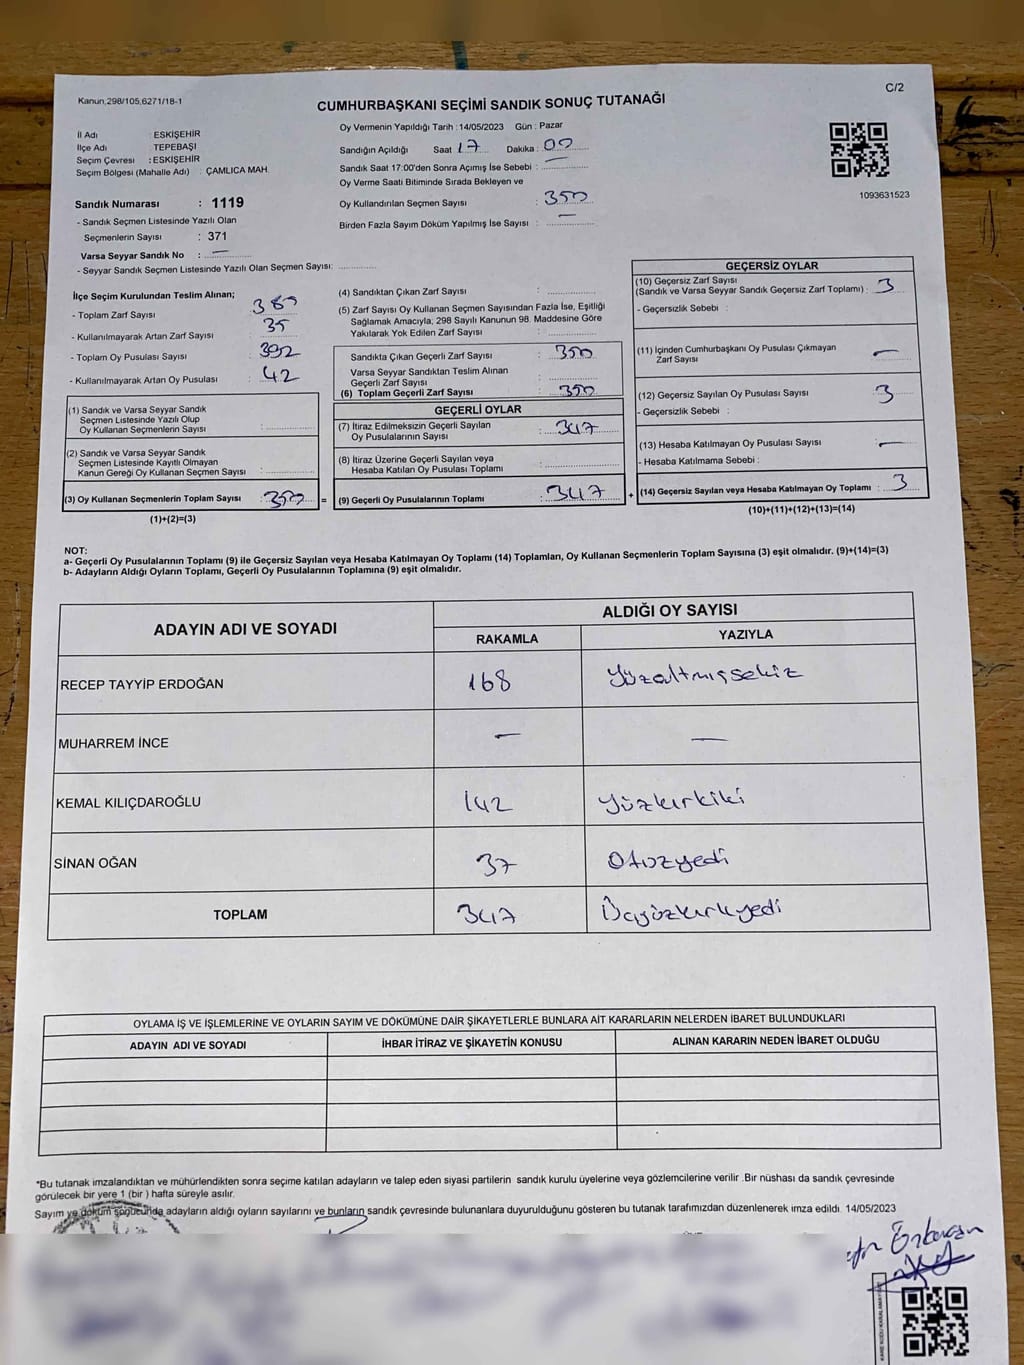 Kanun,298/105,6271/18-1
C/2
CUMHURBAŞKANI SEÇİMİ SANDIK SONUÇ TUTANAĞI
İl Adı : ESKİŞEHİR
İlçe Adı TEPEBAŞI
Seçim Çevresi : ESKİŞEHİR
Seçim Bölgesi (Mahalle Adı) : ÇAMLICA MAH.
Sandık Numarası : 1119
- Sandık Seçmen Listesinde Yazılı Olan
Seçmenlerin Sayısı : 371
Varsa Seyyar Sandık No : —
- Seyyar Sandık Seçmen Listesinde Yazılı Olan Seçmen Sayısı:
Oy Vermenin Yapıldığı Tarih : 14/05/2023 Gün : Pazar
Sandığın Açıldığı Saat 17 Dakika : 00
Sandık Saat 17:00'den Sonra Açımış İse Sebebi : —
Oy Verme Saati Bitiminde Sırada Bekleyen ve
Oy Kullandırılan Seçmen Sayısı 350
Birden Fazla Sayım Döküm Yapılmış İse Sayısı : —
1093631523
İlçe Seçim Kurulundan Teslim Alınan;
- Toplam Zarf Sayısı
- Kullanılmayarak Artan Zarf Sayısı 35
- Toplam Oy Pusulası Sayısı : 392
- Kullanılmayarak Artan Oy Pusulası : 42
(1) Sandık ve Varsa Seyyar Sandık
Seçmen Listesinde Yazılı Olup
Oy Kullanan Seçmenlerin Sayısı :
(2) Sandık ve Varsa Seyyar Sandık
Seçmen Listesinde Kayıtlı Olmayan
Kanun Gereği Oy Kullanan Seçmen Sayısı :
(3) Oy Kullanan Seçmenlerin Toplam Sayısı : 350 =
(1)+(2)=(3)
(4) Sandıktan Çıkan Zarf Sayısı :
(5) Zarf Sayısı Oy Kullanan Seçmen Sayısından Fazla İse, Eşitliği
Sağlamak Amacıyla; 298 Sayılı Kanunun 98. Maddesine Göre
Yakılarak Yok Edilen Zarf Sayısı :
Sandıkta Çıkan Geçerli Zarf Sayısı : 350
Varsa Seyyar Sandıktan Teslim Alınan
Geçerli Zarf Sayısı :
(6) Toplam Geçerli Zarf Sayısı : 350
GEÇERLİ OYLAR
(7) İtiraz Edilmeksizin Geçerli Sayılan
Oy Pusulalarının Sayısı : 347
(8) İtiraz Üzerine Geçerli Sayılan veya
Hesaba Katılan Oy Pusulası Toplamı :
(9) Geçerli Oy Pusulalarının Toplamı : 347 +
GEÇERSİZ OYLAR
(10) Geçersiz Zarf Sayısı
(Sandık ve Varsa Seyyar Sandık Geçersiz Zarf Toplamı) : 3
- Geçersizlik Sebebi :
(11) İçinden Cumhurbaşkanı Oy Pusulası Çıkmayan
Zarf Sayısı : —
(12) Geçersiz Sayılan Oy Pusulası Sayısı : 3
- Geçersizlik Sebebi :
(13) Hesaba Katılmayan Oy Pusulası Sayısı : —
- Hesaba Katılmama Sebebi :
(14) Geçersiz Sayılan veya Hesaba Katılmayan Oy Toplamı : 3
(10)+(11)+(12)+(13)=(14)
NOT:
a- Geçerli Oy Pusulalarının Toplamı (9) ile Geçersiz Sayılan veya Hesaba Katılmayan Oy Toplamı (14) Toplamları, Oy Kullanan Seçmenlerin Toplam Sayısına (3) eşit olmalıdır. (9)+(14)=(3)
b- Adayların Aldığı Oyların Toplamı, Geçerli Oy Pusulalarının Toplamına (9) eşit olmalıdır.
ADAYIN ADI VE SOYADI ALDIĞI OY SAYISI
RAKAMLA YAZIYLA
RECEP TAYYİP ERDOĞAN 168 Yüzaltmışsekiz
MUHARREM İNCE — —
KEMAL KILIÇDAROĞLU 142 Yüzkırkiki
SİNAN OĞAN 37 Otuzyedi
TOPLAM 347 Üçyüzkırkyedi
OYLAMA İŞ VE İŞLEMLERİNE VE OYLARIN SAYIM VE DÖKÜMÜNE DAİR ŞİKAYETLERLE BUNLARA AİT KARARLARIN NELERDEN İBARET BULUNDUKLARI
ADAYIN ADI VE SOYADI İHBAR İTİRAZ VE ŞİKAYETİN KONUSU ALINAN KARARIN NEDEN İBARET OLDUĞU
*Bu tutanak imzalandıktan ve mühürlendikten sonra seçime katılan adayların ve talep eden siyasi partilerin sandık kurulu üyelerine veya gözlemcilerine verilir .Bir nüshası da sandık çevresinde
görülecek bir yere 1 (bir ) hafta süreyle asılır.
Sayım ve döküm sonucunda adayların aldığı oyların sayılarını ve bunların sandık çevresinde bulunanlara duyurulduğunu gösteren bu tutanak tarafımızdan düzenlenerek imza edildi. 14/05/2023